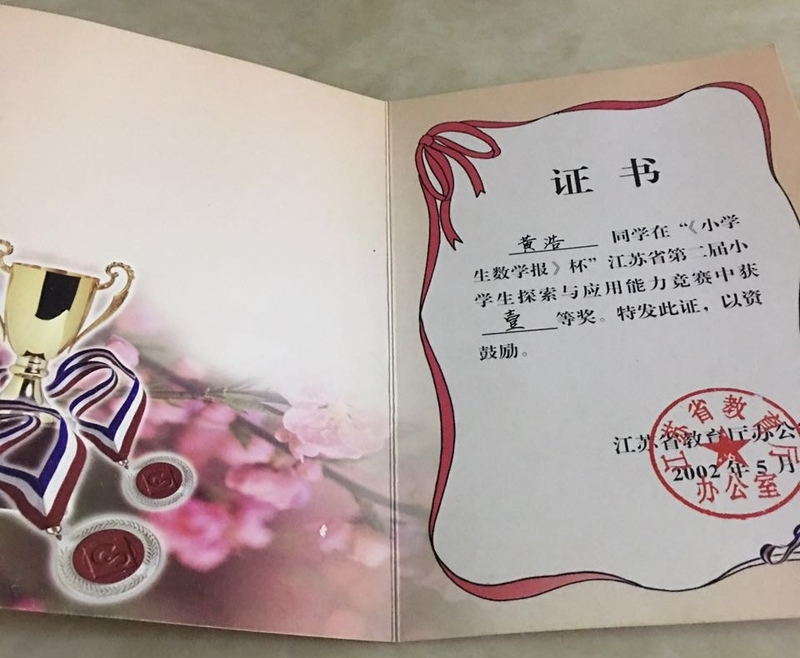 证书
黄浩 同学在“《小学
生数学报》杯”江苏省第二届小
学生探索与应用能力竞赛中获
壹 等奖。特发此证，以资
鼓励。
江苏省教育厅办公
2002年5月
江苏省教育厅
办公室